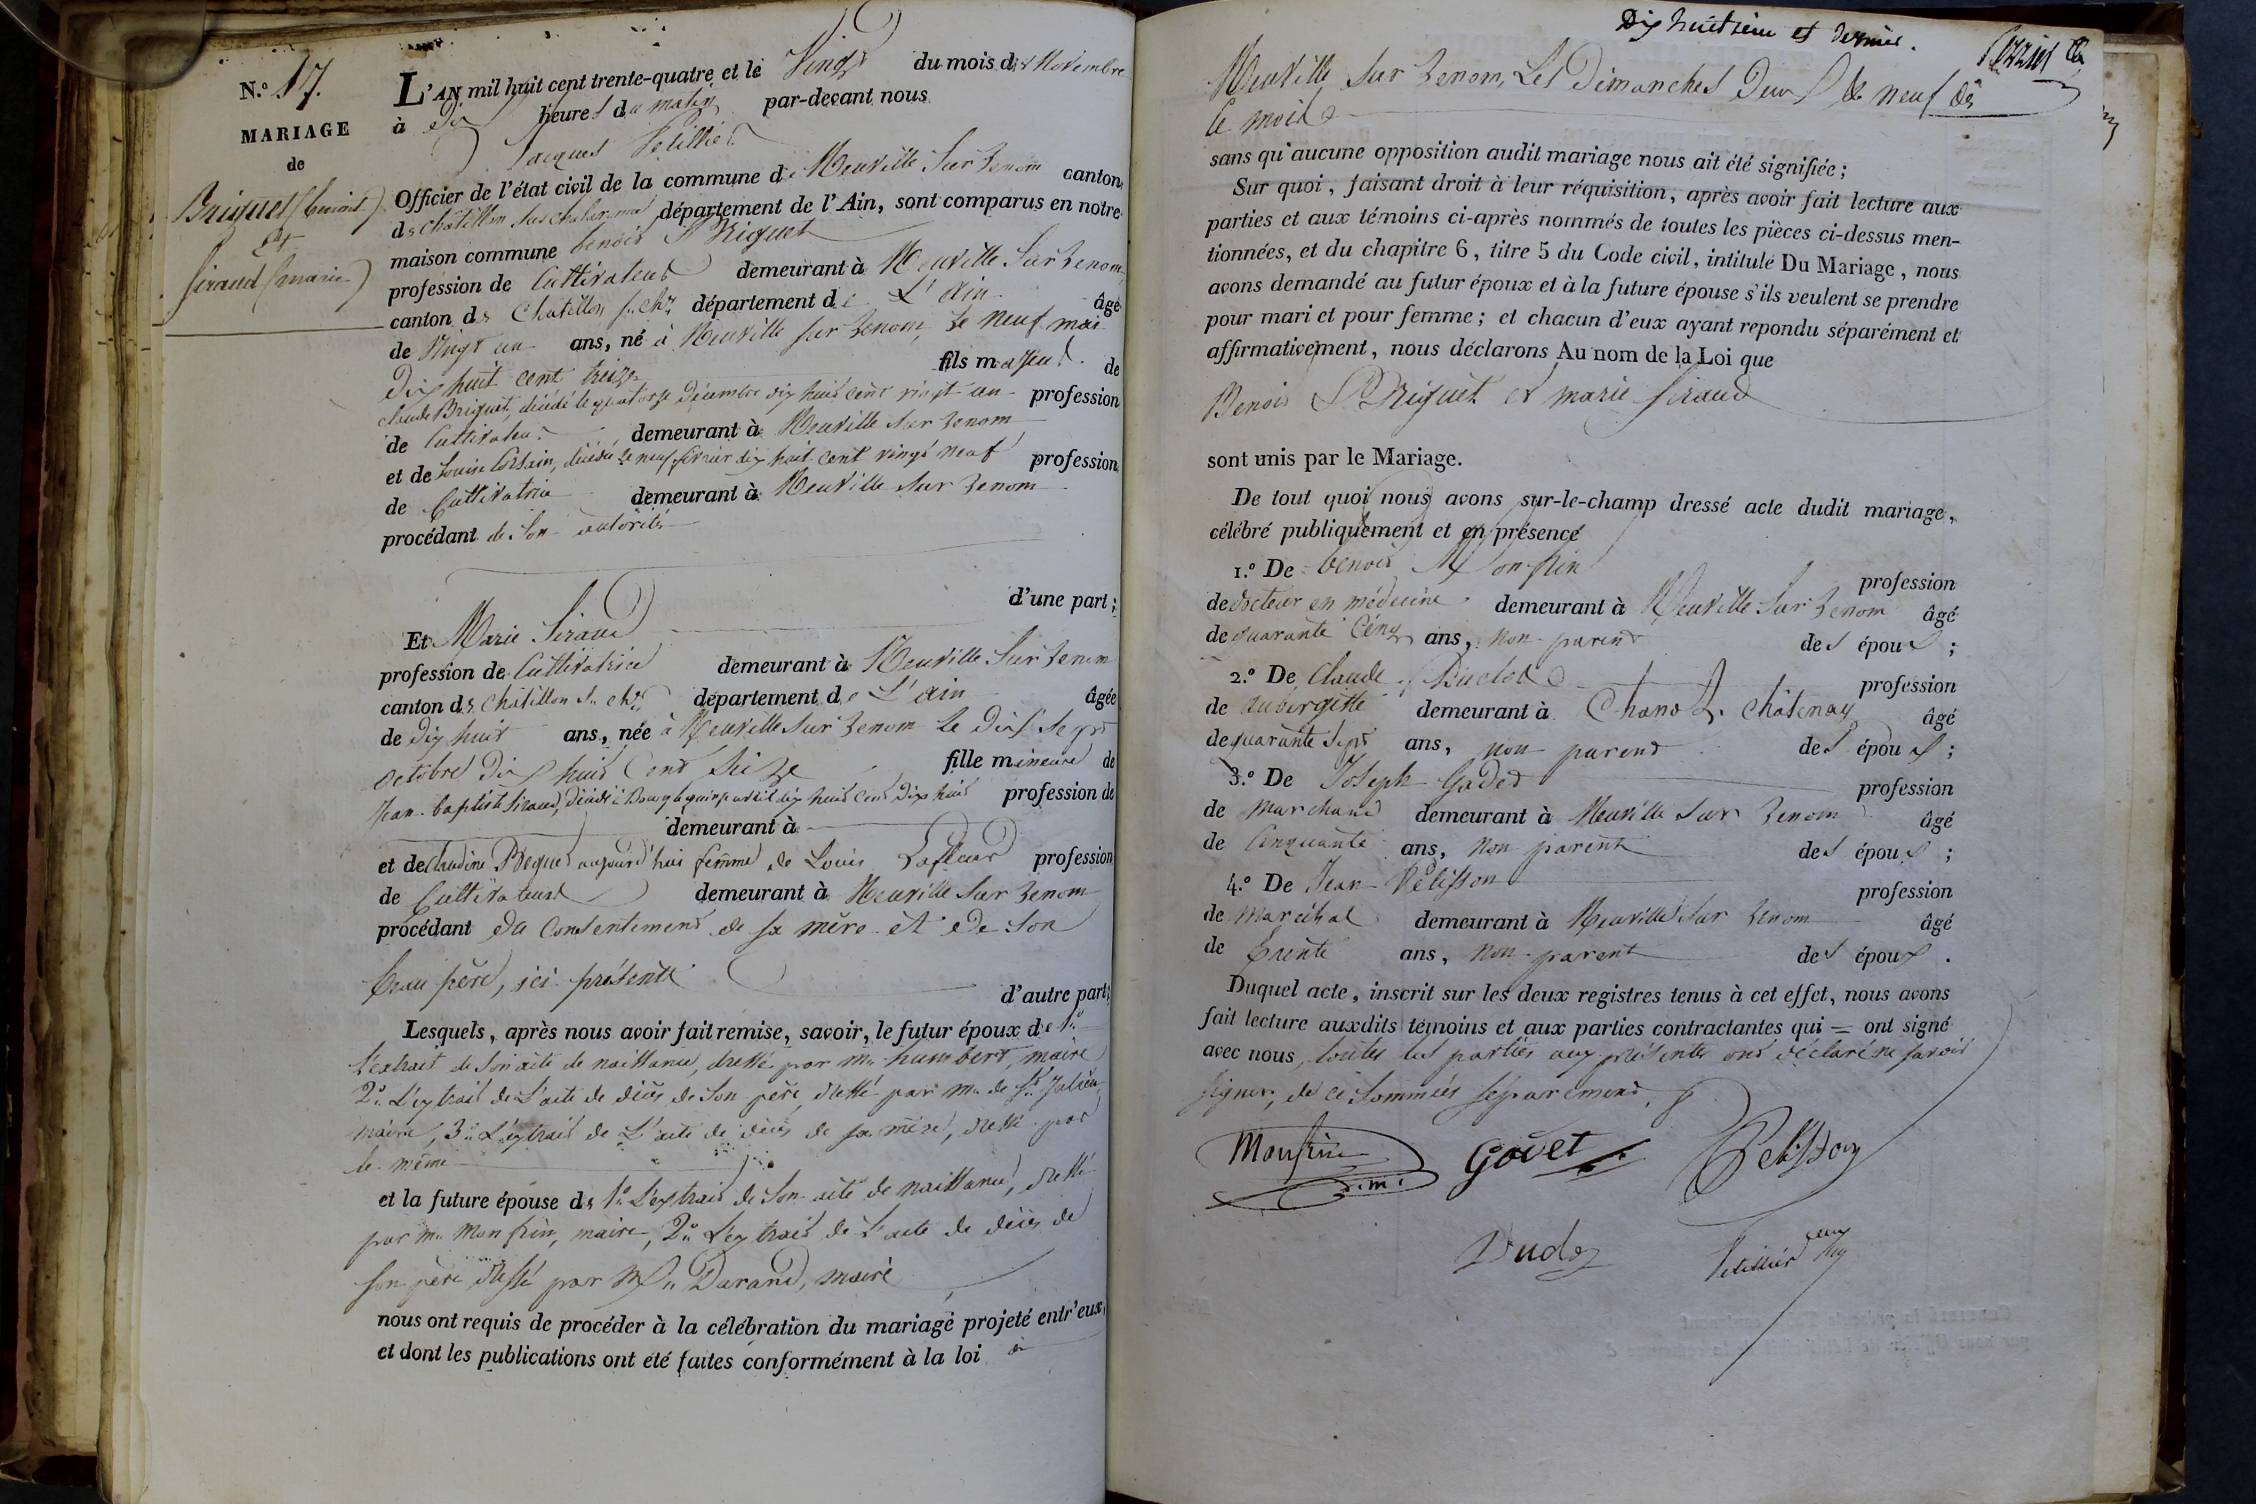 N.º 17.
MARIAGE
de
Briquet (benoit)
Et
Siraud (marie)
L'AN mil huit cent trente-quatre et le Vingt du mois de Novembre
à dix heures du matin par-devant nous
Jacques
Officier de l'état civil de la commune de Neuville Sur Renom canton
de Châtillon sur chalaronne département de l'Ain, sont comparus en notre
maison commune benoit Briquet
profession de Cultivateur demeurant à Neuville Sur Renom
canton de Châtillon s. ch. département de L'ain âgé
de Vingt un ans, né à Neuville sur Renom, le neuf mai
dix huit cent treize fils majeur de
Claude Briquet, décédé le quatorze décembre dix huit cent vingt un profession
de Cultivateur demeurant à Neuville sur Renom
et de Louise, décédée le neuf février dix huit cent vingt neuf profession
de Cultivatrice demeurant à Neuville sur Renom
procédant de Son autorité
d'une part;
Et Marie Siraud
profession de Cultivatrice demeurant à Neuville Sur Renom
canton de Châtillon s. ch. département de L'ain âgée
de dix huit ans, née à Neuville sur Renom le dix sept
octobre dix huit cent seize fille mineure de
Jean-baptiste Siraud, décédé à Bourg le quinze avril dix huit cent dix huit profession de
demeurant à
et de Claudine aujourd'hui femme de Louis Lafleur profession
de Cultivateur demeurant à Neuville sur Renom
procédant du Consentement de sa mère et de Son
beau père, ici présents
d'autre part;
Lesquels, après nous avoir fait remise, savoir, le futur époux de 1.º
l'extrait de son acte de naissance, dressé par mr. humbert, maire
2.º L'extrait de L'acte de décès de Son père, dressé par mr. de St. Julien,
maire, 3.º L'extrait de L'acte de décès de sa mère, dressé par
le même
et la future épouse de 1.º L'extrait de Son acte de naissance, dressé
par mr. Monfrin, maire, 2.º L'extrait de L'acte de décès de
son père dressé par Mr. Durand, maire
nous ont requis de procéder à la célébration du mariage projeté entr'eux,
et dont les publications ont été faites conformément à la loi à
Dix huitième et dernier.
Neuville sur Renom, Les Dimanches Deux & neuf de
ce mois
sans qu'aucune opposition audit mariage nous ait été signifiée;
Sur quoi, faisant droit à leur réquisition, après avoir fait lecture aux
parties et aux témoins ci-après nommés de toutes les pièces ci-dessus men-
tionnées, et du chapitre 6, titre 5 du Code civil, intitulé Du Mariage, nous
avons demandé au futur époux et à la future épouse s'ils veulent se prendre
pour mari et pour femme; et chacun d'eux ayant repondu séparément et
affirmativement, nous déclarons Au nom de la Loi que
Benoit Briquet et marie Siraud
sont unis par le Mariage.
De tout quoi nous avons sur-le-champ dressé acte dudit mariage,
célébré publiquement et en présence
1.º De benoit Monfrin profession
de docteur en médecine demeurant à Neuville Sur Renom âgé
de quarante cinq ans, non parent des époux;
2.º De Claude profession
de aubergiste demeurant à Chanoz Châtenay âgé
de quarante sept ans, non parent des époux;
3.º De Joseph Godet profession
de marchand demeurant à Neuville sur Renom âgé
de Cinquante ans, non parent des époux;
4.º De Jean Pelisson profession
de maréchal demeurant à Neuville sur Renom âgé
de trente ans, non parent des époux.
Duquel acte, inscrit sur les deux registres tenus à cet effet, nous avons
fait lecture auxdits témoins et aux parties contractantes qui = ont signé
avec nous, toutes les parties aux présentes ont déclaré ne savoir
signer, de ce sommées séparement.
Monfrin Godet Pelisson
d.m.